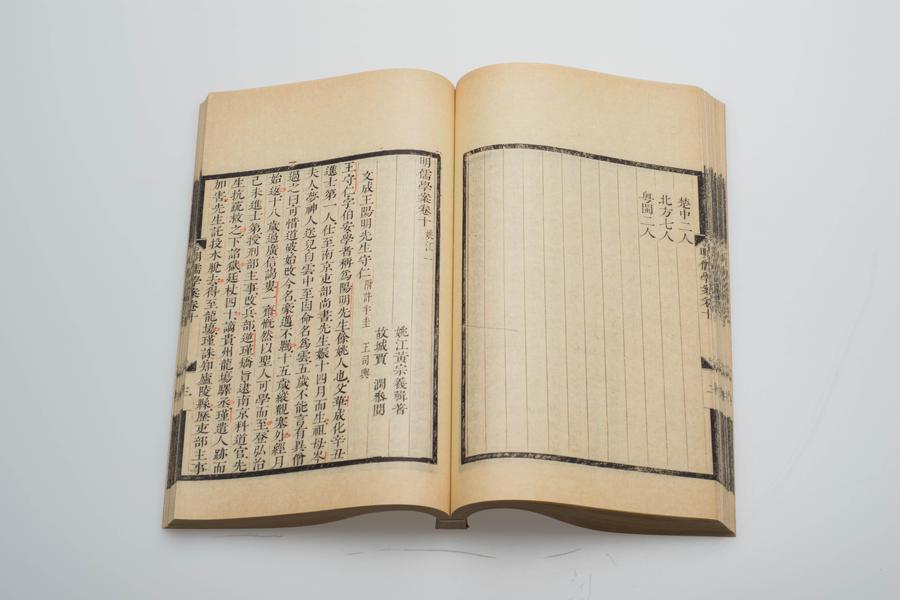 楚中二人
北方七人
粤閩二人
明儒學案卷十
明儒學案卷十 姚江一
姚江黃宗羲輯著
故城賈 潤參閱
文成王陽明先生守仁 附許半圭 王司輿
王守仁字伯安學者稱爲陽明先生餘姚人也父華成化辛丑
進士第一人仕至南京吏部尚書先生娠十四月而生祖母岑
夫人夢神人送兒自雲中至因命名爲雲五歲不能言有異僧
過之曰可惜道破始改今名豪邁不羈十五歲縱觀塞外經月
始返十八歲過廣信謁婁一齋慨然以聖人可學而至登弘治
己未進士第授刑部主事改兵部逆瑾矯旨逮南京科道官先
生抗疏救之下詔獄廷杖四十謫貴州龍場驛丞瑾遣人跡而
加害先生託投水脫去得至龍場瑾誅知廬陵縣歷吏部主事
明儒學案卷十